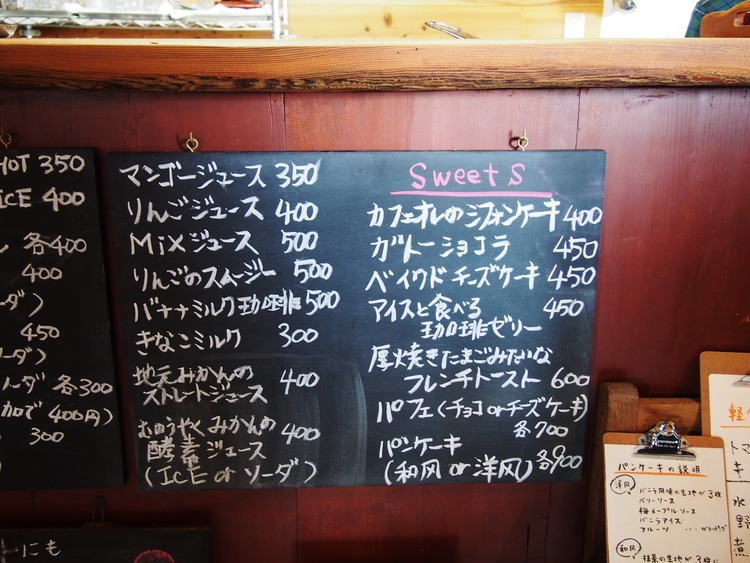 HOT 350
ICE 400
各400
400
ーダ)
450
ーダ)
ーダ 各300
加で 400円)
300
マンゴージュース 350
りんごジュース 400
Mixジュース 500
りんごのスムージー 500
バナナミルク珈琲 500
きなこミルク 300
地元みかんの
ストレートジュース 400
むのうやくみかんの
酵素ジュース 400
(ICE or ソーダ)
Sweets
カフェオレのシフォンケーキ 400
ガトーショコラ 450
ベイクドチーズケーキ 450
アイスと食べる 450
珈琲ゼリー
厚焼きたまごみたいな
フレンチトースト 600
パフェ(チョコorチーズケーキ)
各700
パンケーキ
(和风or洋风) 各900
トにも
パンケーキの説明
洋风
バニラ風味の生地が3枚
ベリーソース
梅メープルソース
バニラアイス
フルーツ
和风
抹茶の生地が3枚に
軽
トマ
キ
水
野
煮